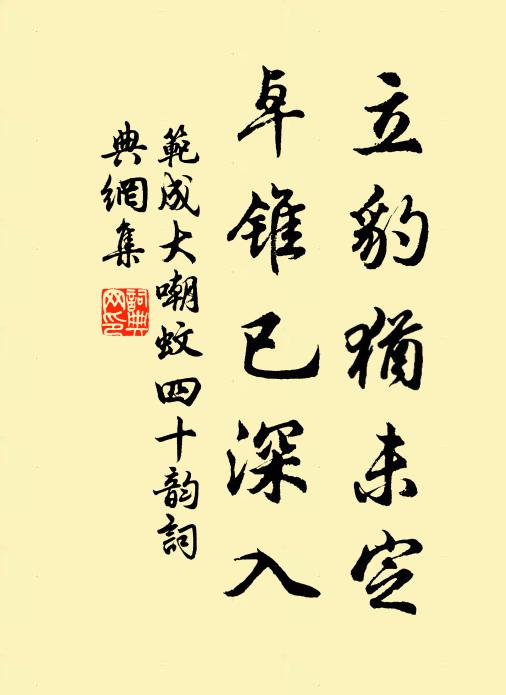 立豹猶未定
卓錐已深入
範成大嘲蚊四十韵詞
典網集
詞典
网印